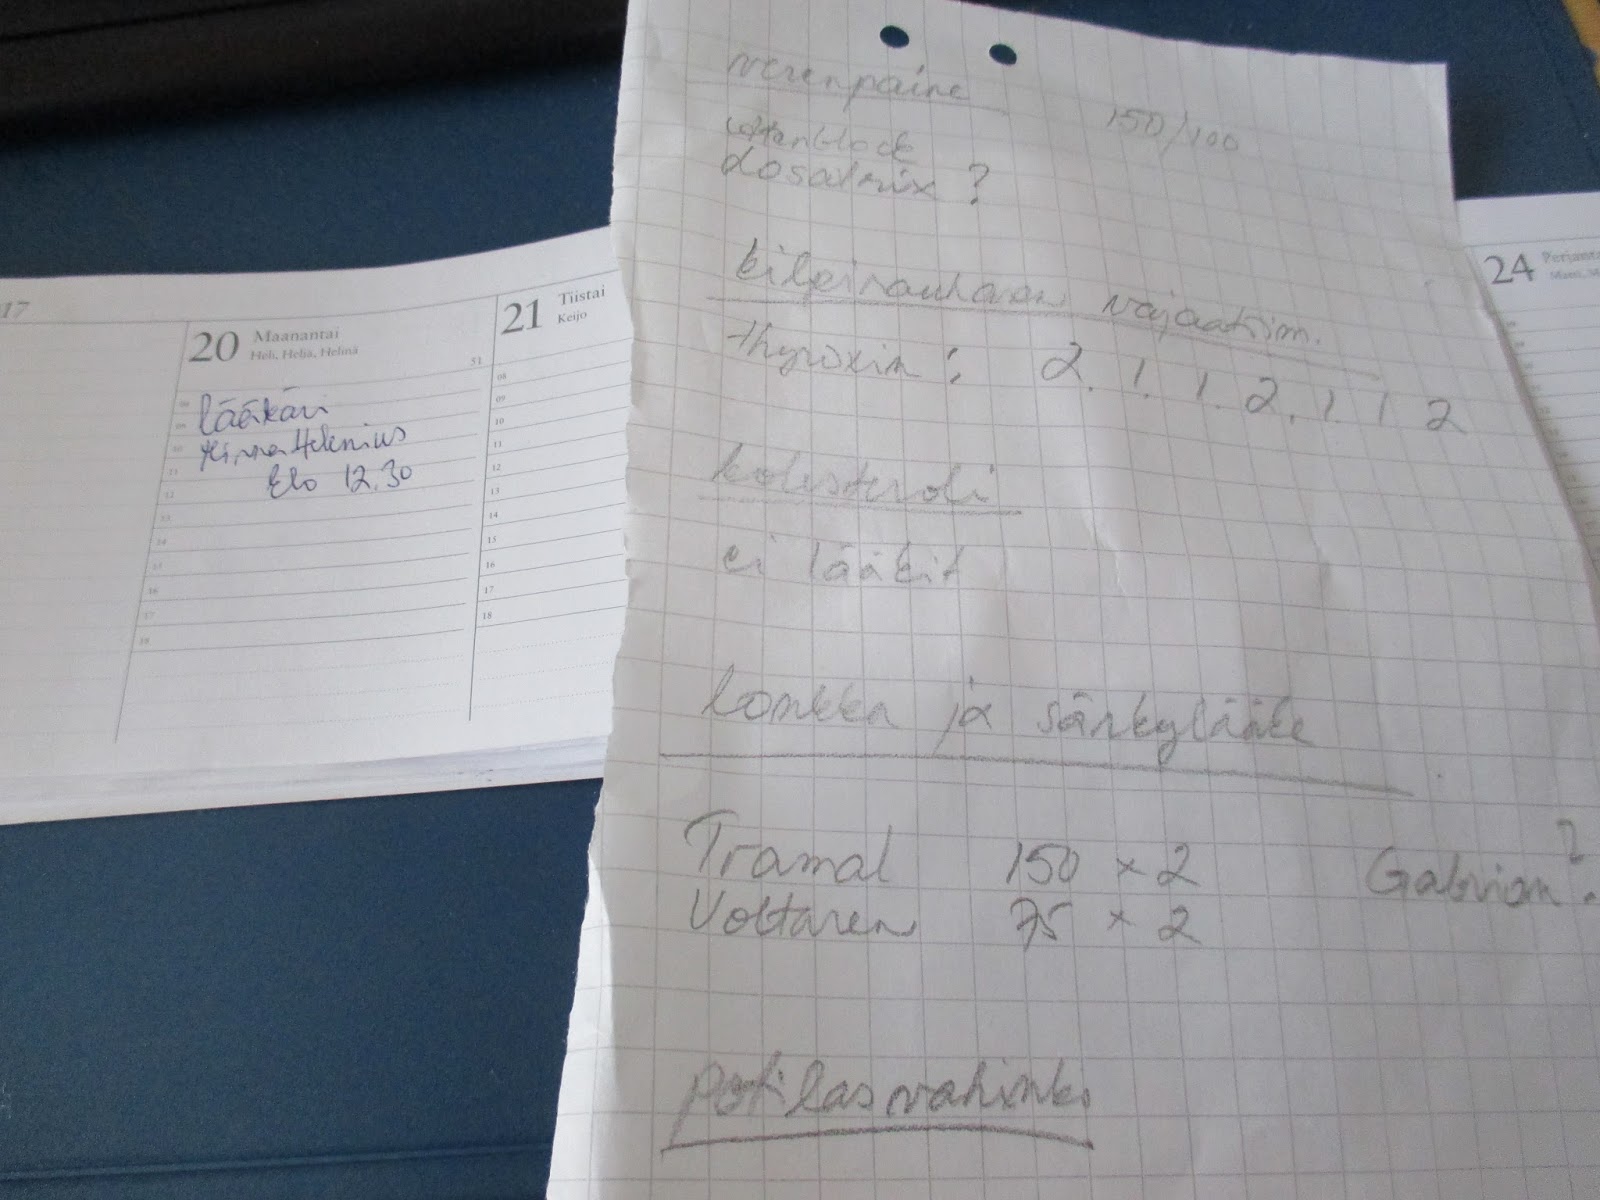 17
20 Maanantai
Heli, Helja, Helinä
51
lääkäri
Minna Helenius
klo 12.30
21 Tiistai
Keijo
08
09
10
11
12
13
14
15
16
17
18
verenpaine
150/100
dosatrix ?
kilpirauhasen vajaatoim.
thyroxin : 2. 1. 1. 2. 1. 1 2
kolesteroli
ei lääkit
lonkka ja särkylääke
Tramal 150 x 2
Voltaren 75 x 2
?
potilasvahinko
24 Perjantai